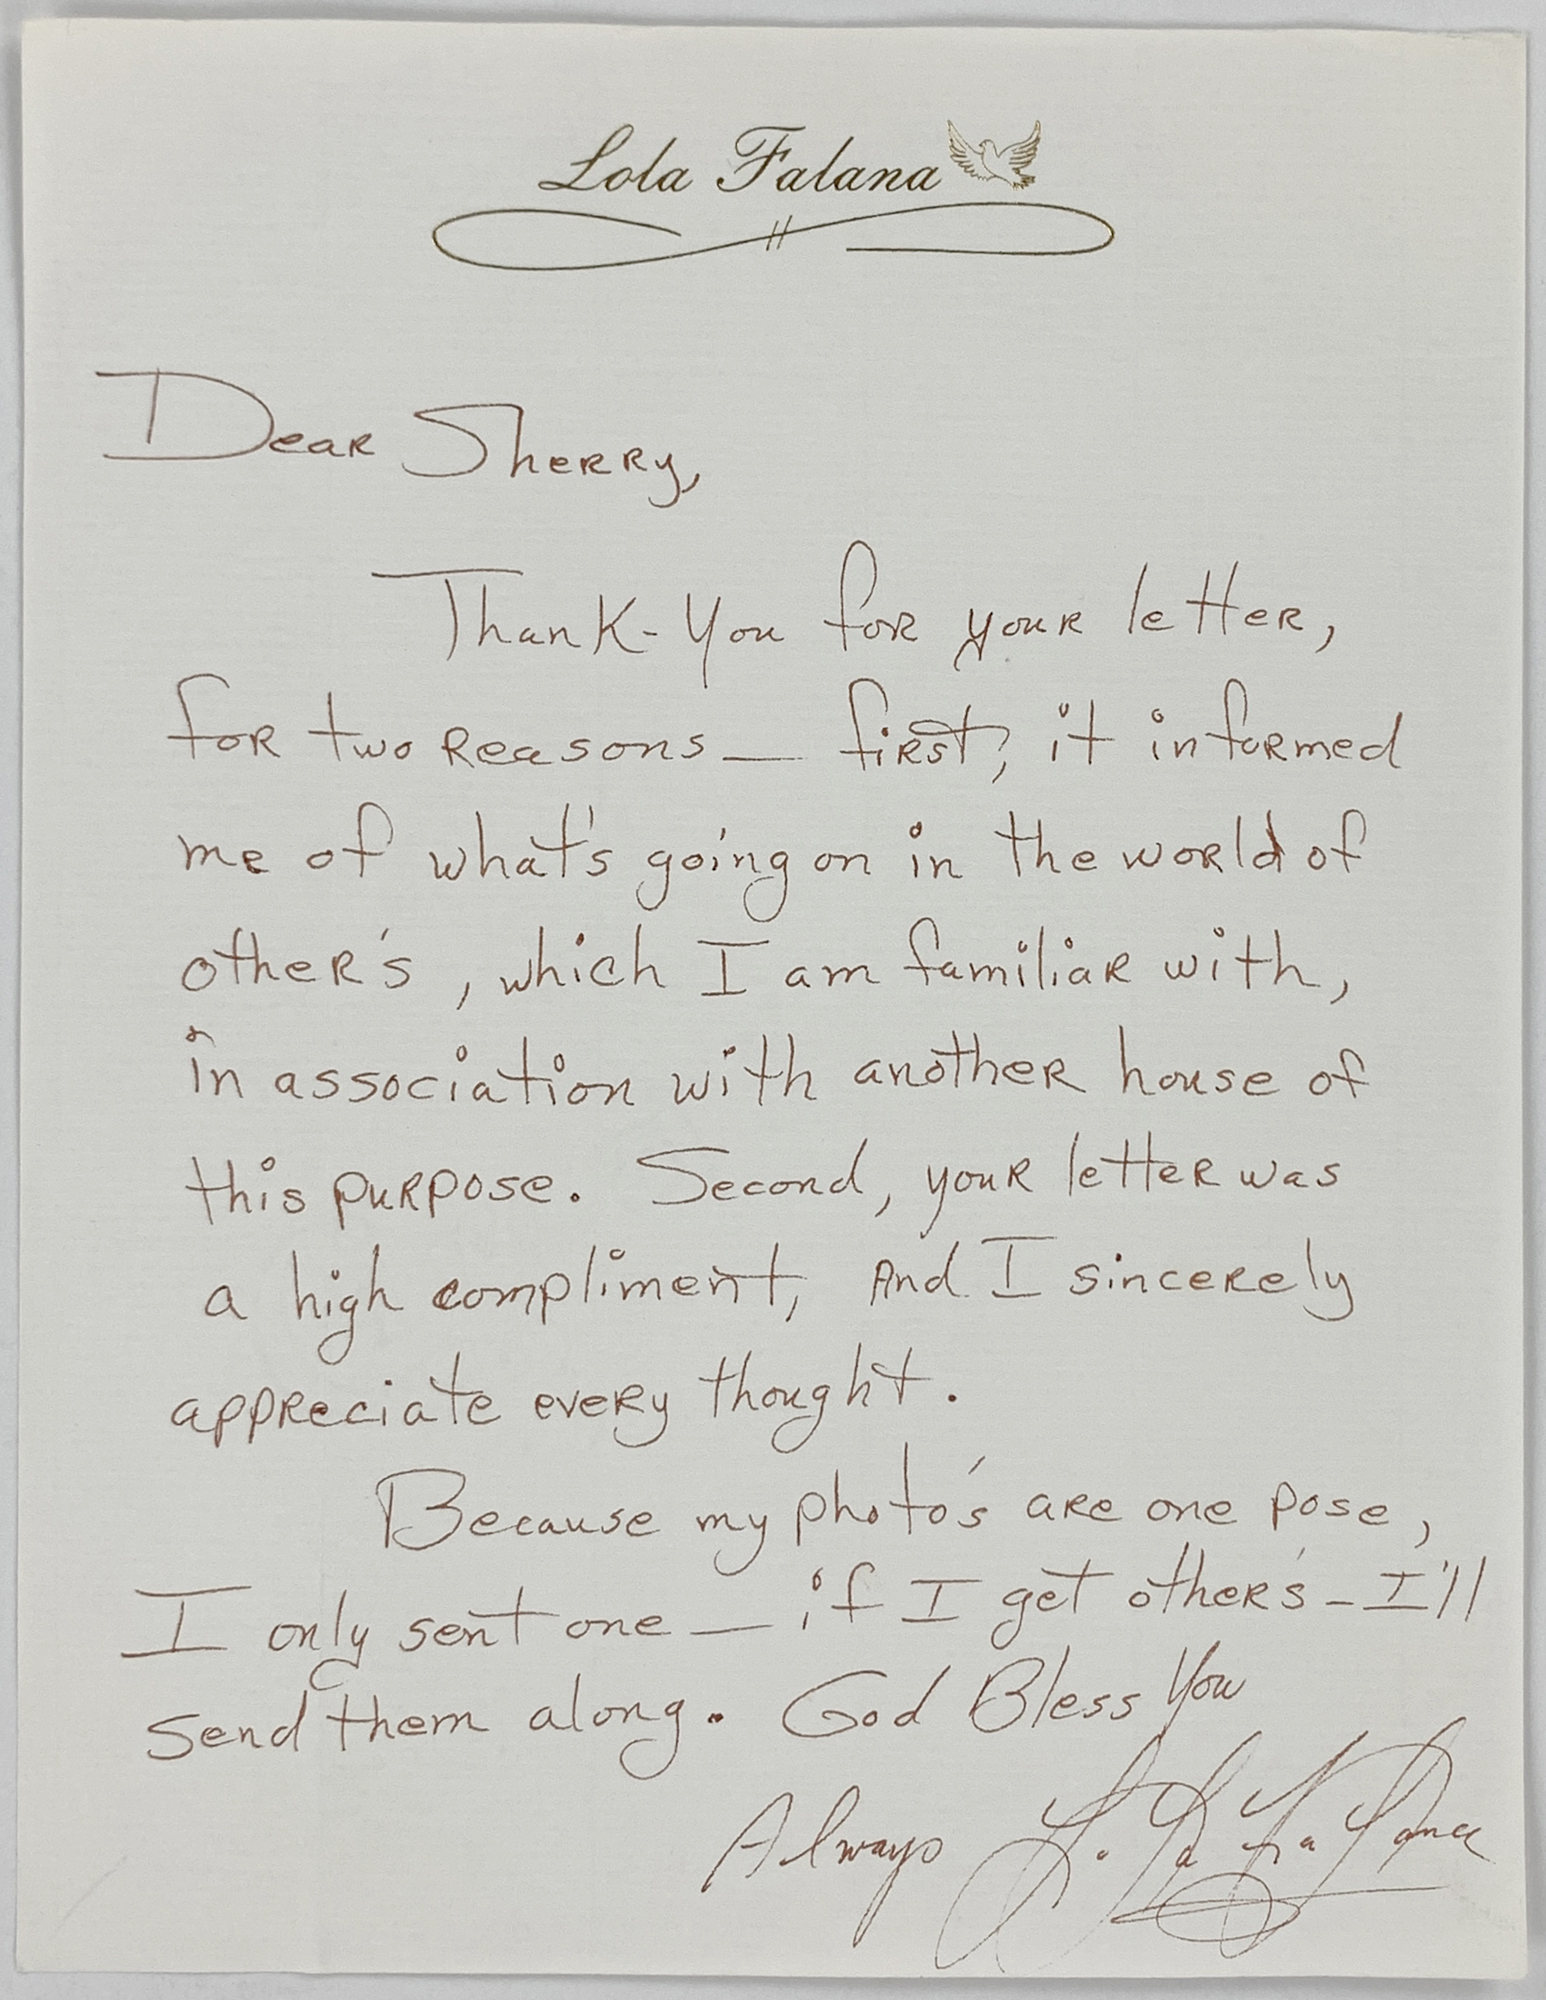 Lola Falana
Dear Sherry,
Thank-You for your letter,
for two reasons — first, it informed
me of what's going on in the world of
other's, which I am familiar with,
in association with another house of
this purpose. Second, your letter was
a high compliment, And I sincerely
appreciate every thought.
Because my photo's are one pose,
I only sent one — if I get other's - I'll
send them along. God Bless You
Always Lola Falana